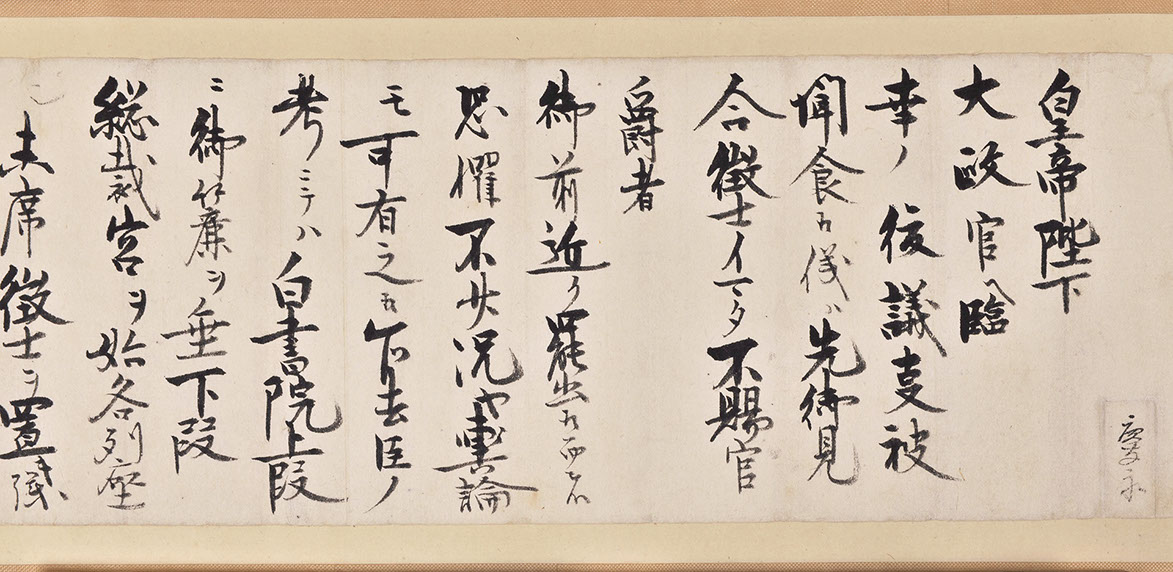 慶永
皇帝陛下
大政官へ臨
幸ノ後議事被
聞食候儀ハ先御見
合徴士イマタ不賜官
爵者
御前近ク罷出候而者
恐懼不少況や輿論
モ可有之候乍去臣ノ
考ミテハ白書院上段
ニ御仕簾ヲ垂下段
総裁宮ヲ始各列座
し末席徴士ヲ置き議